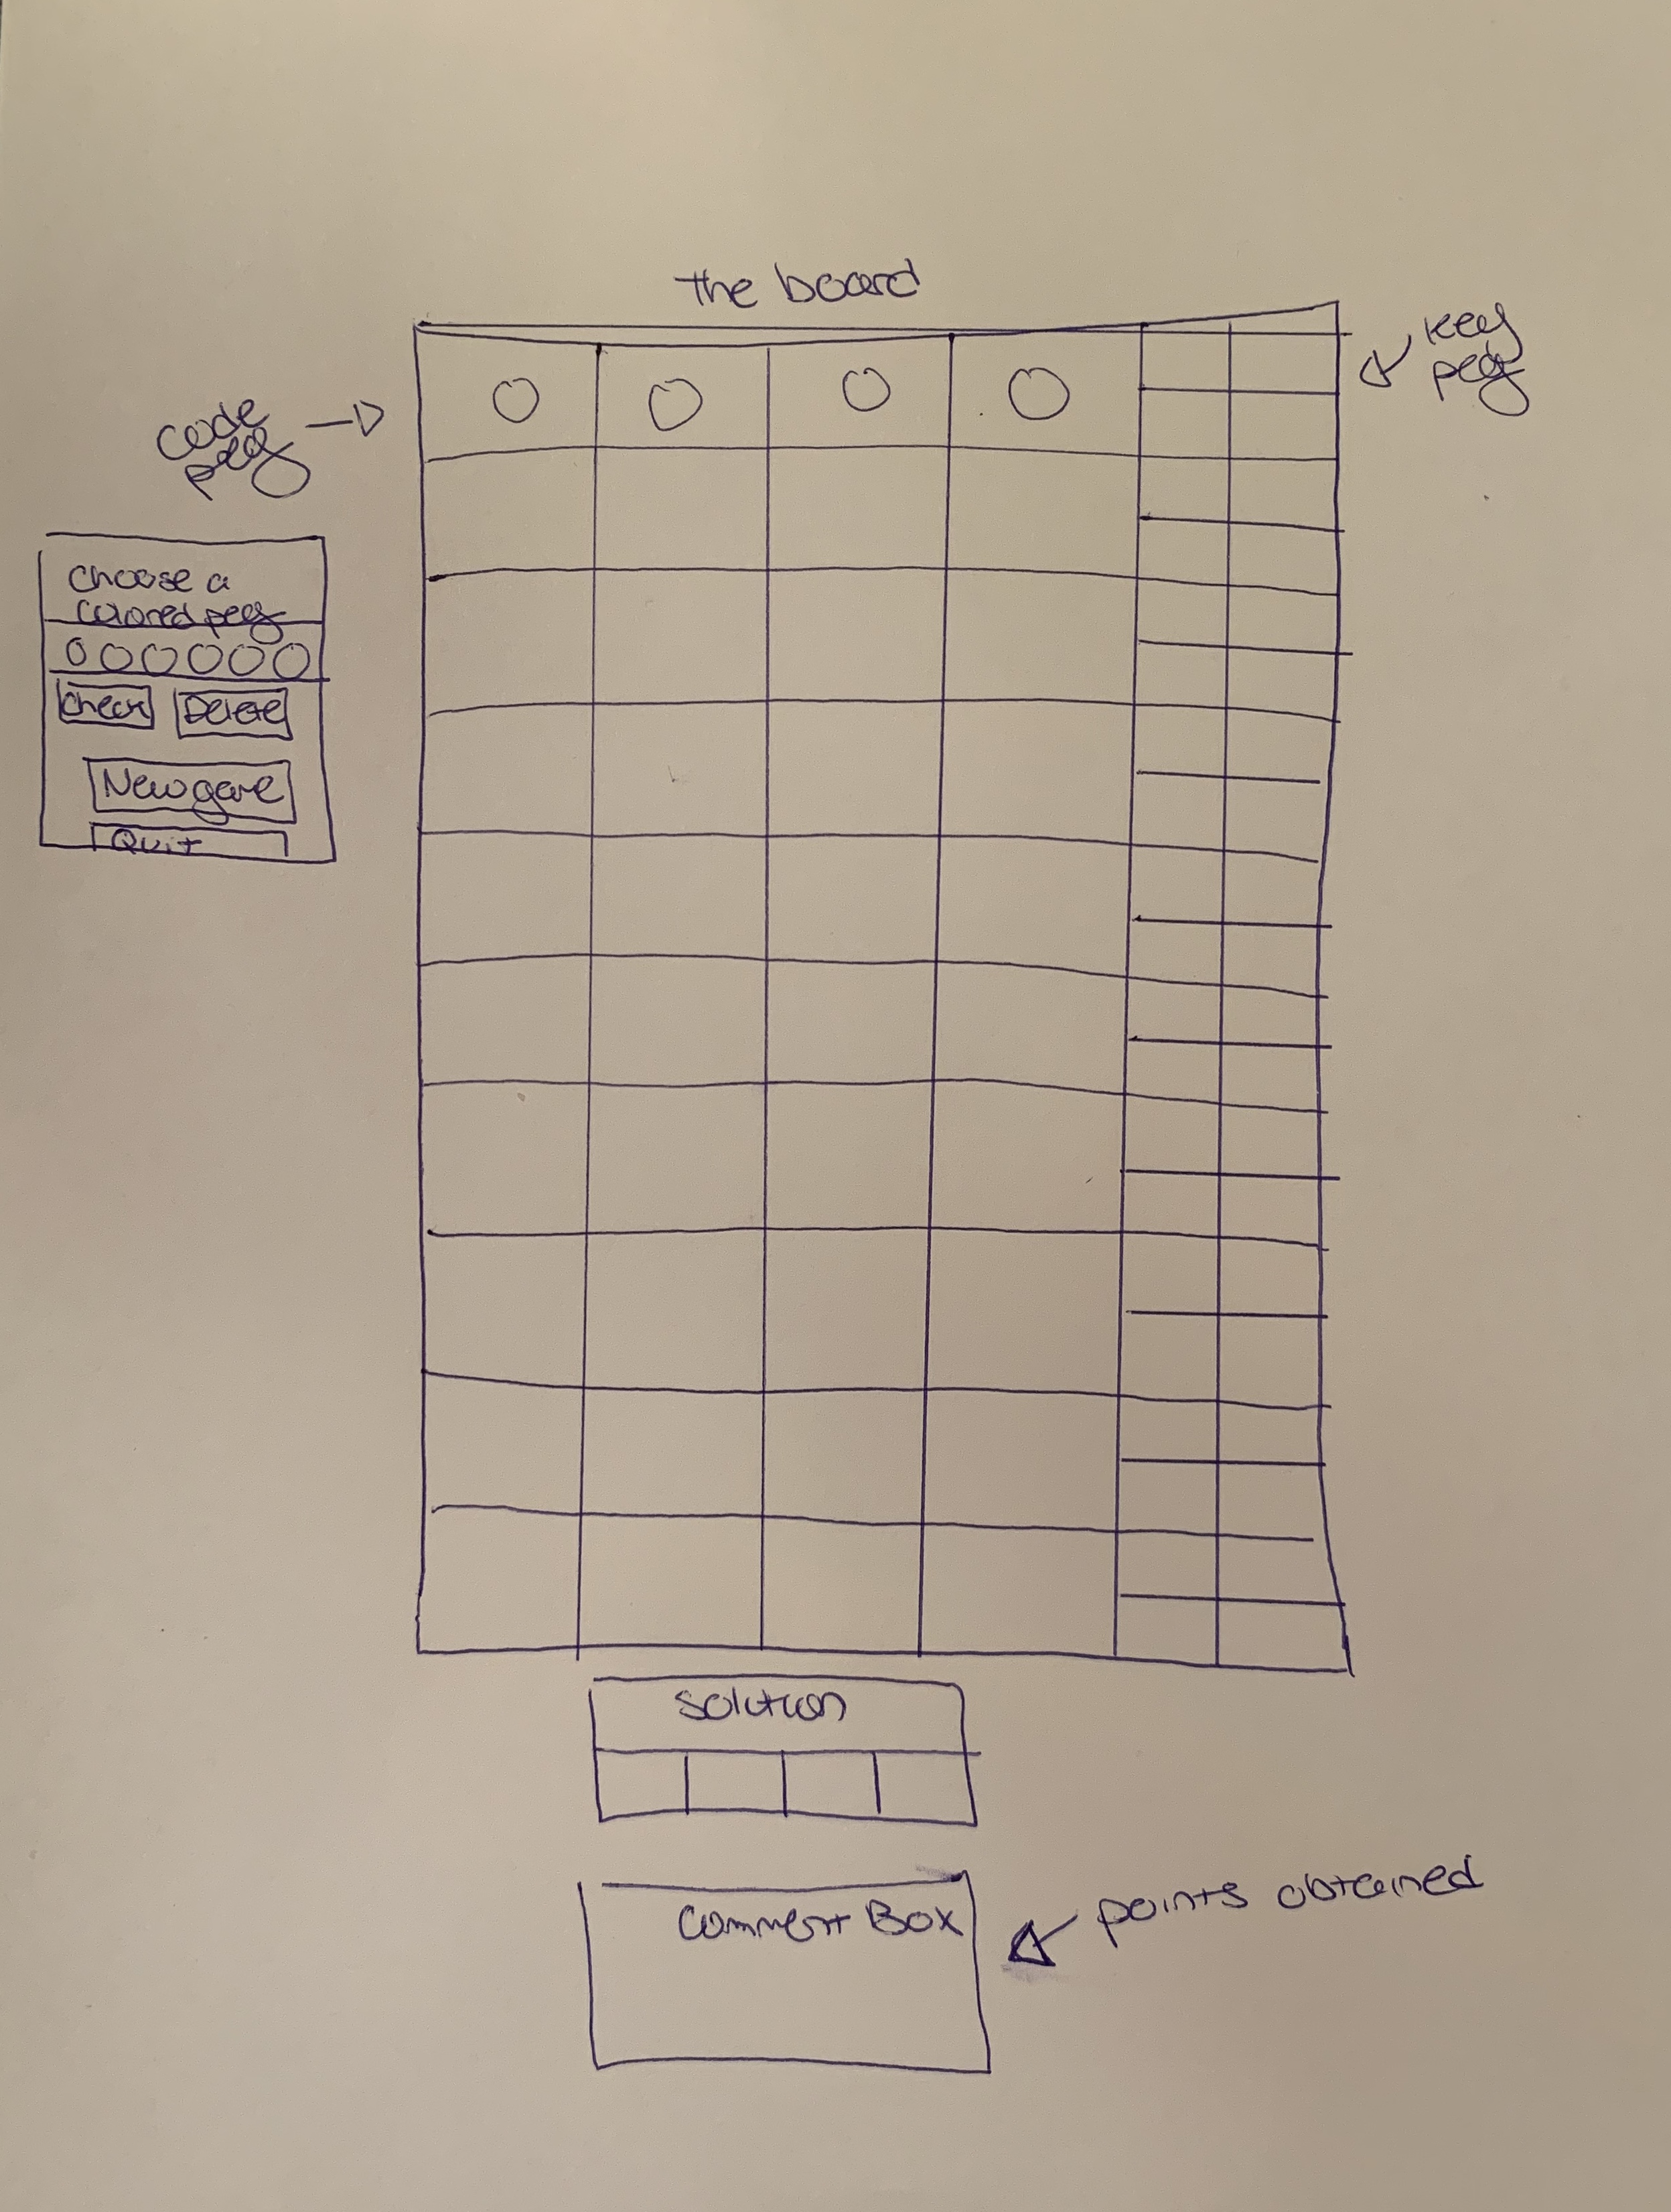 the board
key
peg
code
peg
choose a
colored peg
Check
Delete
New game
Quit
solution
comment Box
points obtained